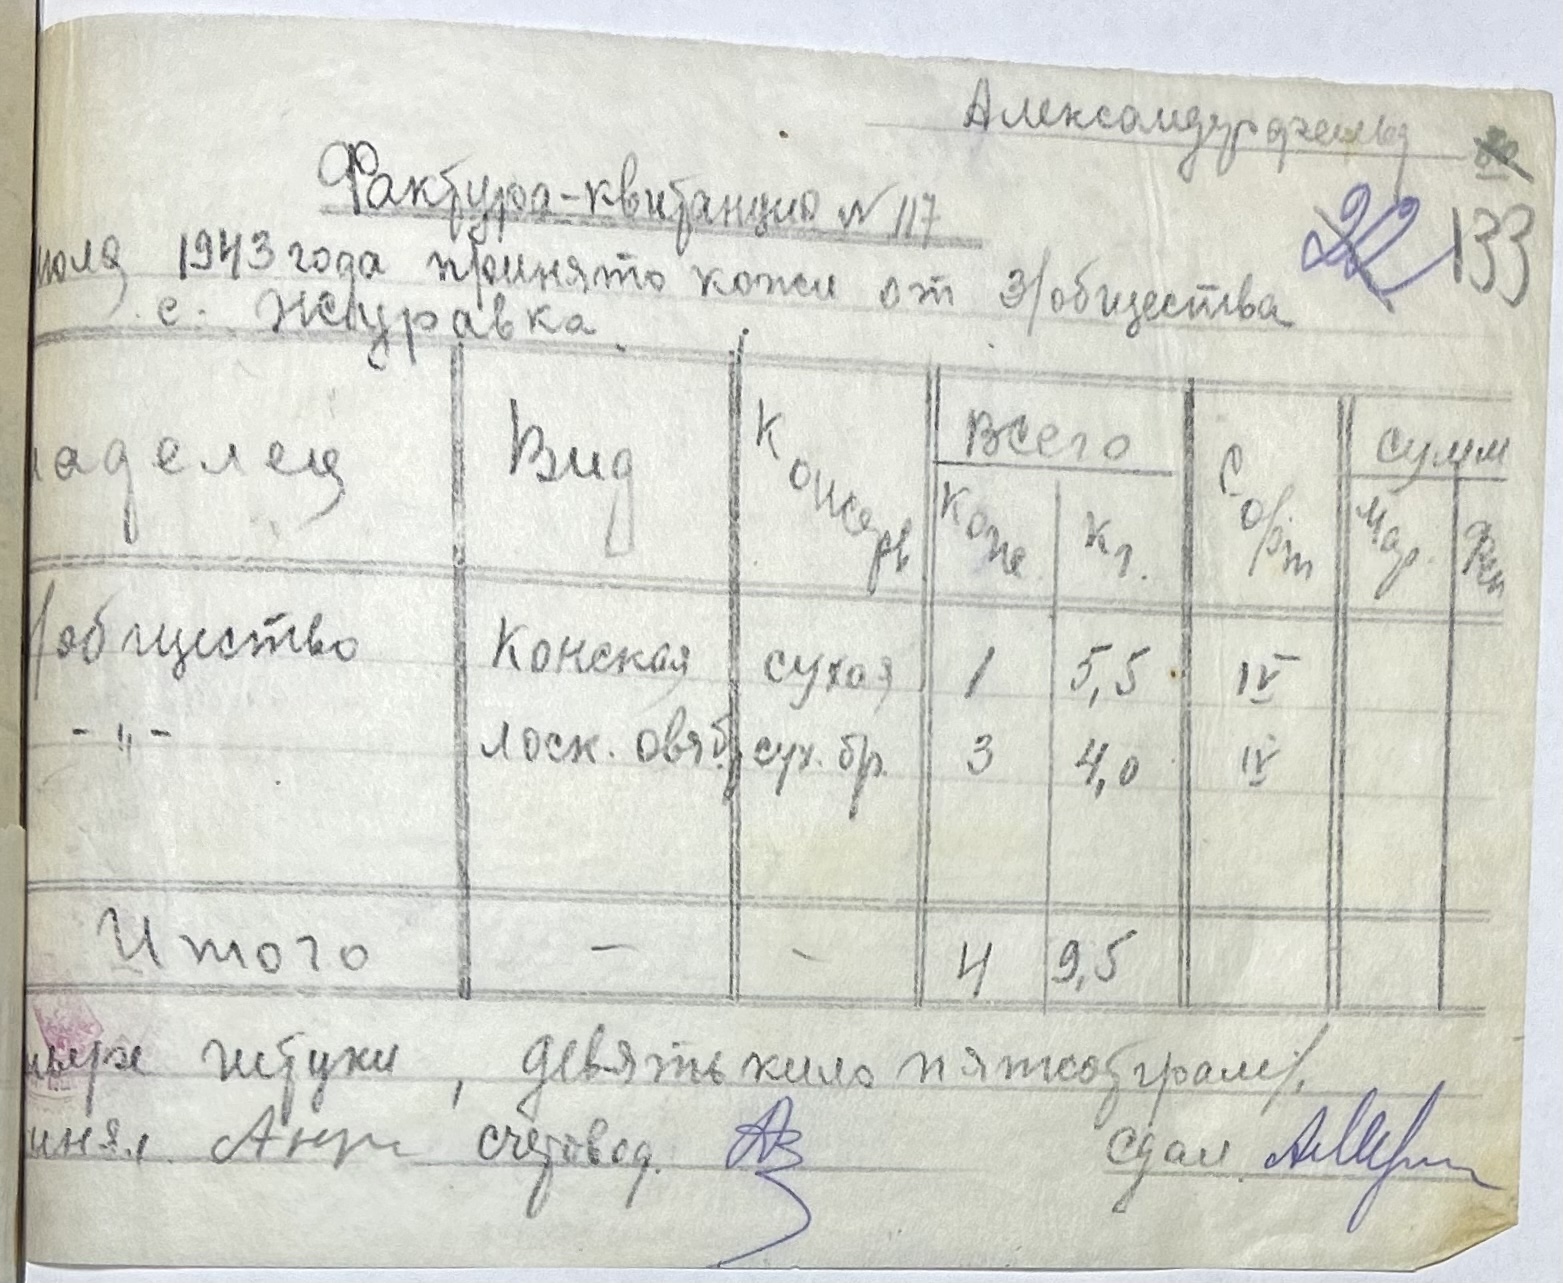 Александерфельд
22 133
Фактура-квитанция № 117
июля 1943 года принято кожи от З/общества
с. Журавка
ладелец Вид Консерв Всего Сорт Сумм
Кож Кг. Мар. Фен
/общество Конская сухая 1 5,5 IV
-"- лоск. овяб. сух. бр. 3 4,0 IV
Итого - - 4 9,5
тыре штуки, девять кило пятсот грам/.
инял счетовод. сдал